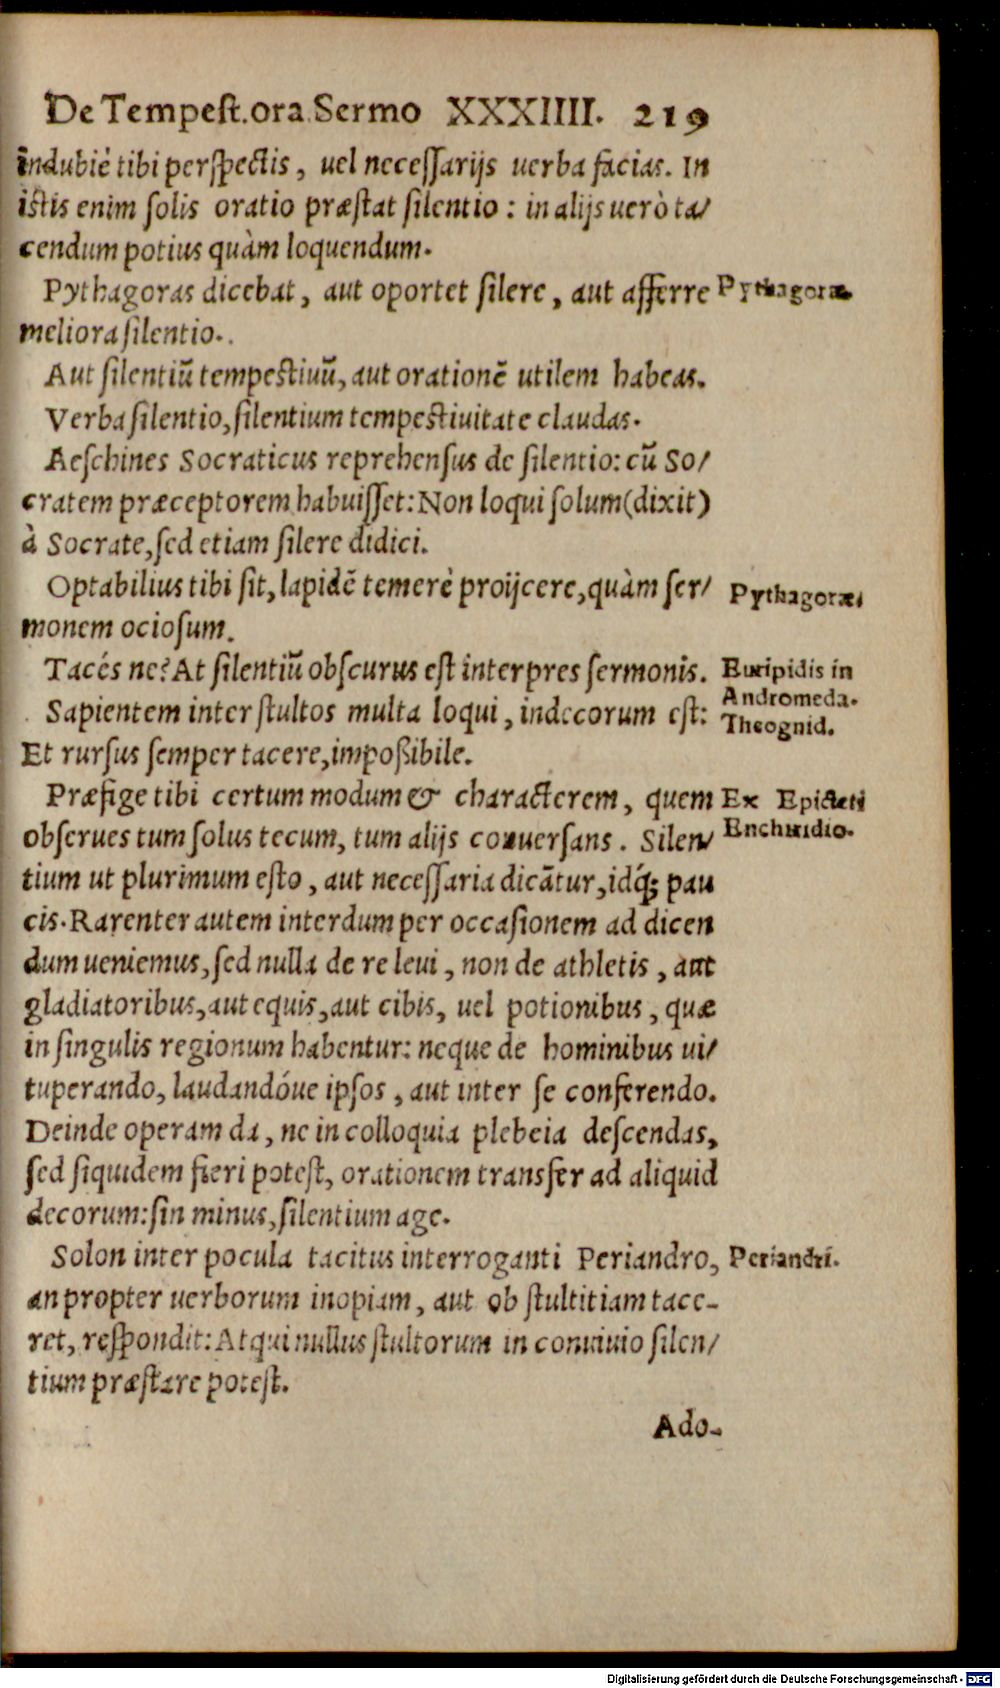 De Tempest.ora Sermo XXXIIII. 219
indubiè tibi perspectis, uel necessarijs uerba facias. In
istis enim solis oratio præstat silentio: in alijs uerò ta/
cendum potius quàm loquendum.
Pythagoras dicebat, aut oportet silere, aut afferre
Pythagoræ.
meliora silentio.
Aut silentiũ tempestiuũ, aut orationẽ utilem habeas.
Verba silentio, silentium tempestiuitate claudas.
Aeschines Socraticus reprehensus de silentio: cũ So/
cratem præceptorem habuisset: Non loqui solum (dixit)
à Socrate, sed etiam silere didici.
Optabilius tibi sit, lapidẽ temerè proijcere, quàm ser/
Pythagoræ.
monem ociosum.
Tacés ne? At silentiũ obscurus est interpres sermonis.
Euripidis in
Andromeda.
Sapientem inter stultos multa loqui, indecorum est:
Theognid.
Et rursus semper tacere, impoßibile.
Præfige tibi certum modum & characterem, quem
Ex Epicteti
obserues tum solus tecum, tum alijs conuersans. Silen/
Enchiridio.
tium ut plurimum esto, aut necessaria dicãtur, idq́; pau
cis. Rarenter autem interdum per occasionem ad dicen
dum ueniemus, sed nulla de re leui, non de athletis, aut
gladiatoribus, aut equis, aut cibis, uel potionibus, quæ
in singulis regionum habentur: neque de hominibus ui/
tuperando, laudandóue ipsos, aut inter se conferendo.
Deinde operam da, ne in colloquia plebeia descendas,
sed siquidem fieri potest, orationem transfer ad aliquid
decorum: sin minus, silentium age.
Solon inter pocula tacitus interroganti Periandro,
Periandri.
an propter uerborum inopiam, aut ob stultitiam tace-
ret, respondit: Atqui nullus stultorum in conuiuio silen/
tium præstare potest.
Ado-
Digitalisierung gefördert durch die Deutsche Forschungsgemeinschaft - DFG